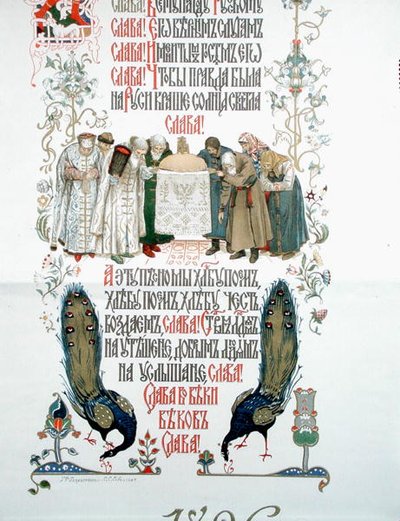 СЛАВА! ЕГО ВѢРНЫМЪ СЛУГАМЪ
СЛАВА! ИМЕНИТЫМЪ ГОСТЯМЪ ЕГО
СЛАВА! ЧТОБЫ ПРАВДА БЫЛА
НА РУСИ КРАШЕ СОЛНЦА СВѢТЛА
СЛАВА!
А ЭТУ ПѢСНЮ МЫ ХЛѢБУ ПОЕМЪ,
ХЛѢБУ ПОЕМЪ, ХЛѢБУ ЧЕСТЬ
ВОЗДАЕМЪ СЛАВА! СТАРЫМЪ ЛЮДЯМЪ
НА УТѢШЕНЬЕ, ДОБРЫМЪ ЛЮДЯМЪ
НА УСЛЫШАНЬЕ, СЛАВА!
СЛАВА ВО ВѢКИ
ВѢКОВЪ
СЛАВА!